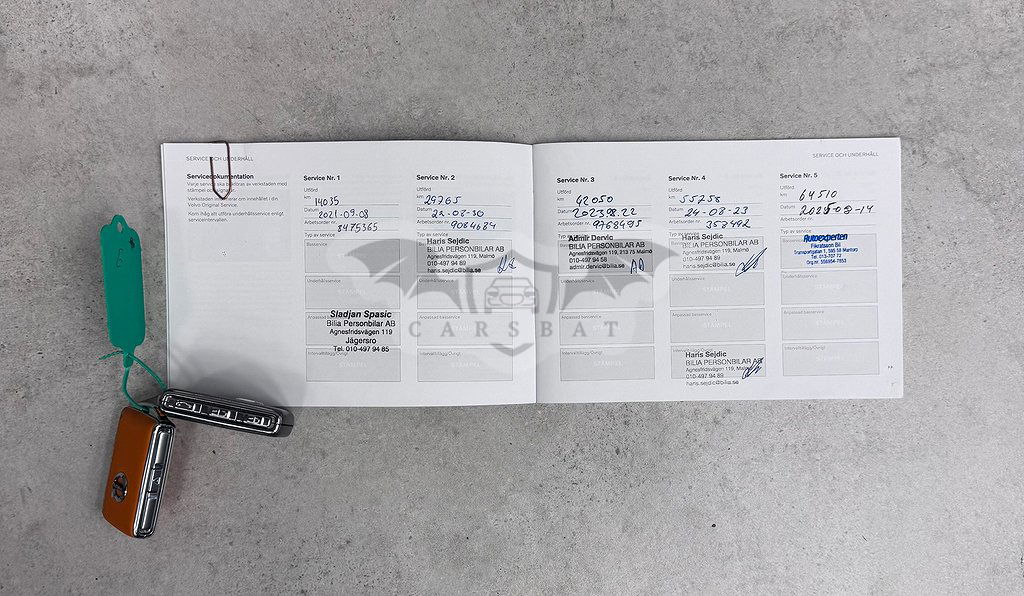 SERVICE OCH UNDERHÅLL
Servicedokumentation
Varje service ska bekräftas av verkstaden med
stämpel och signatur.
Verkstaden instämmer om innehållet i din
Volvo Original Service.
Kom ihåg att utföra underhållsservice enligt
serviceintervallen.
Service Nr. 1
Utförd
km 14035
Datum 2021-09-08
Arbetsorder nr. 8475365
Typ av service
Basservice
Underhållsservice
STÄMPEL
Anpassad basservice
Sladjan Spasic
Bilia Personbilar AB
Agnesfridsvägen 119
Jägersro
Tel. 010-497 94 85
Intervalltillägg/Övrigt
STÄMPEL
Service Nr. 2
Utförd
km 29765
Datum 22-08-30
Arbetsorder nr. 9084684
Typ av service
Haris Sejdic
BILIA PERSONBILAR AB
Agnesfridsvägen 119, Malmö
010-497 94 89
haris.sejdic@bilia.se
Underhållsservice
Anpassad basservice
STÄMPEL
Intervalltillägg/Övrigt
STÄMPEL
SERVICE OCH UNDERHÅLL
Service Nr. 3
Utförd
km 42050
Datum
Arbetsorder nr. 9768495
Typ av service
Admir Dervic
BILIA PERSONBILAR AB
Agnesfridsvägen 119, 213 75 Malmö
010-497 94 58
admir.dervic@bilia.se
AD
Underhållsservice
Anpassad basservice
STÄMPEL
Intervalltillägg/Övrigt
STÄMPEL
Service Nr. 4
Utförd
km 55758
Datum 24-08-23
Arbetsorder nr. 358492
Typ av service
Haris Sejdic
BILIA PERSONBILAR AB
Agnesfridsvägen 119, Malmö
010-497 94 89
haris.sejdic@bilia.se
Underhållsservice
STÄMPEL
Anpassad basservice
STÄMPEL
Intervalltillägg/Övrigt
Haris Sejdic
BILIA PERSONBILAR AB
Agnesfridsvägen 119, Malmö
010-497 94 89
haris.sejdic@bilia.se
Service Nr. 5
Utförd
km 64510
Datum 2025-08-14
Arbetsorder nr.
Typ av service
Autoexperten
Fikratsson Bil
Underhållsservice
STÄMPEL
Anpassad basservice
STÄMPEL
Intervalltillägg/Övrigt
STÄMPEL
CARSBAT